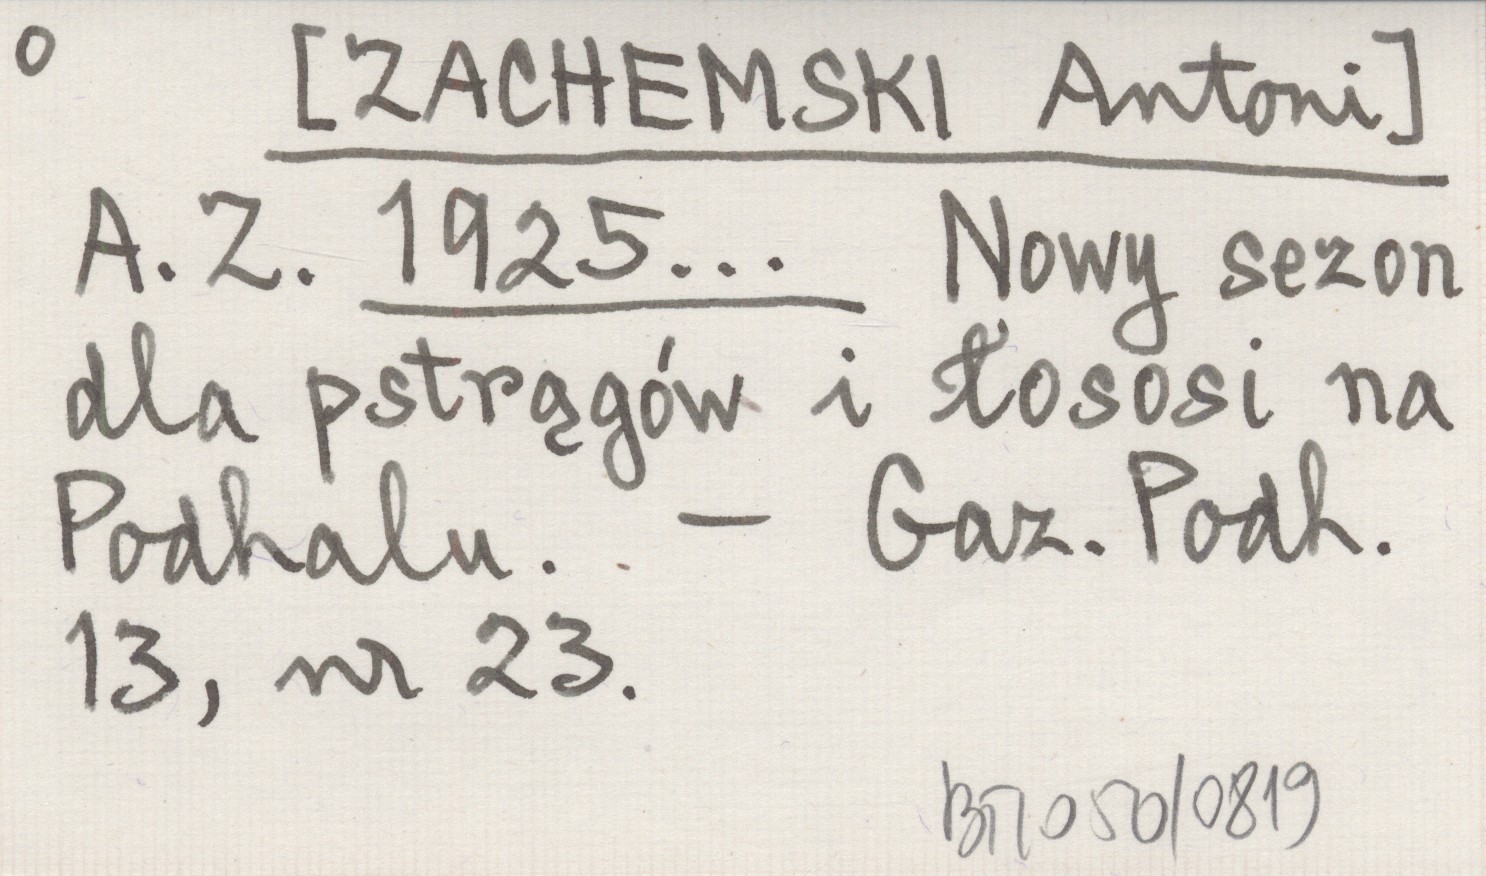 o [ZACHEMSKI Antoni]
A.Z. 1925... Nowy sezon
dla pstrągów i łososi na
Podhalu. — Gaz. Podh.
13, nr 23.
050/0819